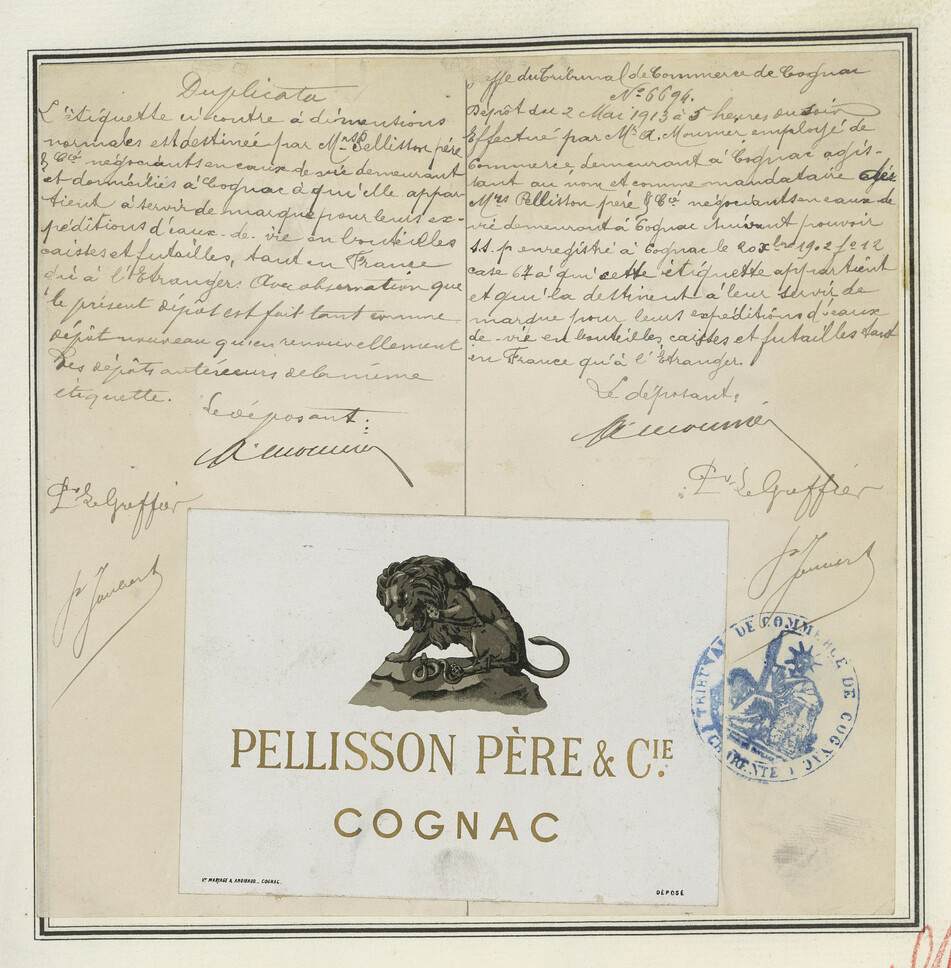 Duplicata
L'étiquette ci contre à dimensions
normales est destinée par Mrs Pellisson père
& Cie négociants en eaux de vie demeurant
et domiciliés à Cognac à qu'elle appar-
tient à servir de marque pour leurs ex-
péditions d'eaux-de-vie en bouteilles
caisses et futailles, tant en France
qu'à l'Etrangers Avec observation que
le présent dépôt est fait tant comme
dépôt nouveau qu'en renouvellement
des dépôts antérieurs de la même
étiquette.
Le déposant:
A. Mounier
Pr Le Greffier
ffe du Tribunal de Commerce de Cognac
No 6694.
Dépôt du 2 Mai 1913 à 5 heures du soir
Effectué par Mr A. Mounier employé de
Commerce demeurant à Cognac agis-
sant au nom et comme mandataire de
Mrs Pellisson père & Cie négociants en eaux de
vie demeurant à Cognac suivant pouvoir
s.s.p enregistré à Cognac le 20 Xbre 1902 fo 12
case 67 à qui cette étiquette appartient
et qui la destinent à leur servir de
marque pour leurs expéditions d'eaux
de-vie en bouteilles caisses et futailles tant
en France qu'à l'Etranger.
Le déposant:
A. Mounier
Pr Le Greffier
TRIBUNAL DE COMMERCE DE COGNAC
(CHARENTE)
PELLISSON PÈRE & CIE.
COGNAC
Vve MARIAGE & ANDIBAUD_COGNAC.
DÉPOSÉ